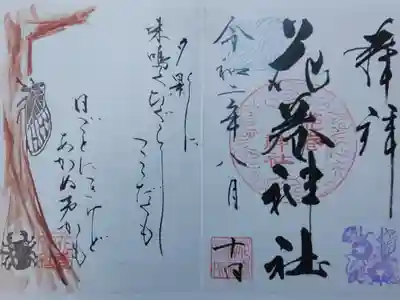 奉拝
花巻神社
令和二年八月
十日
夕影に
来鳴くひぐらし
ここだくも
日ごとにきけど
あかぬ声かも